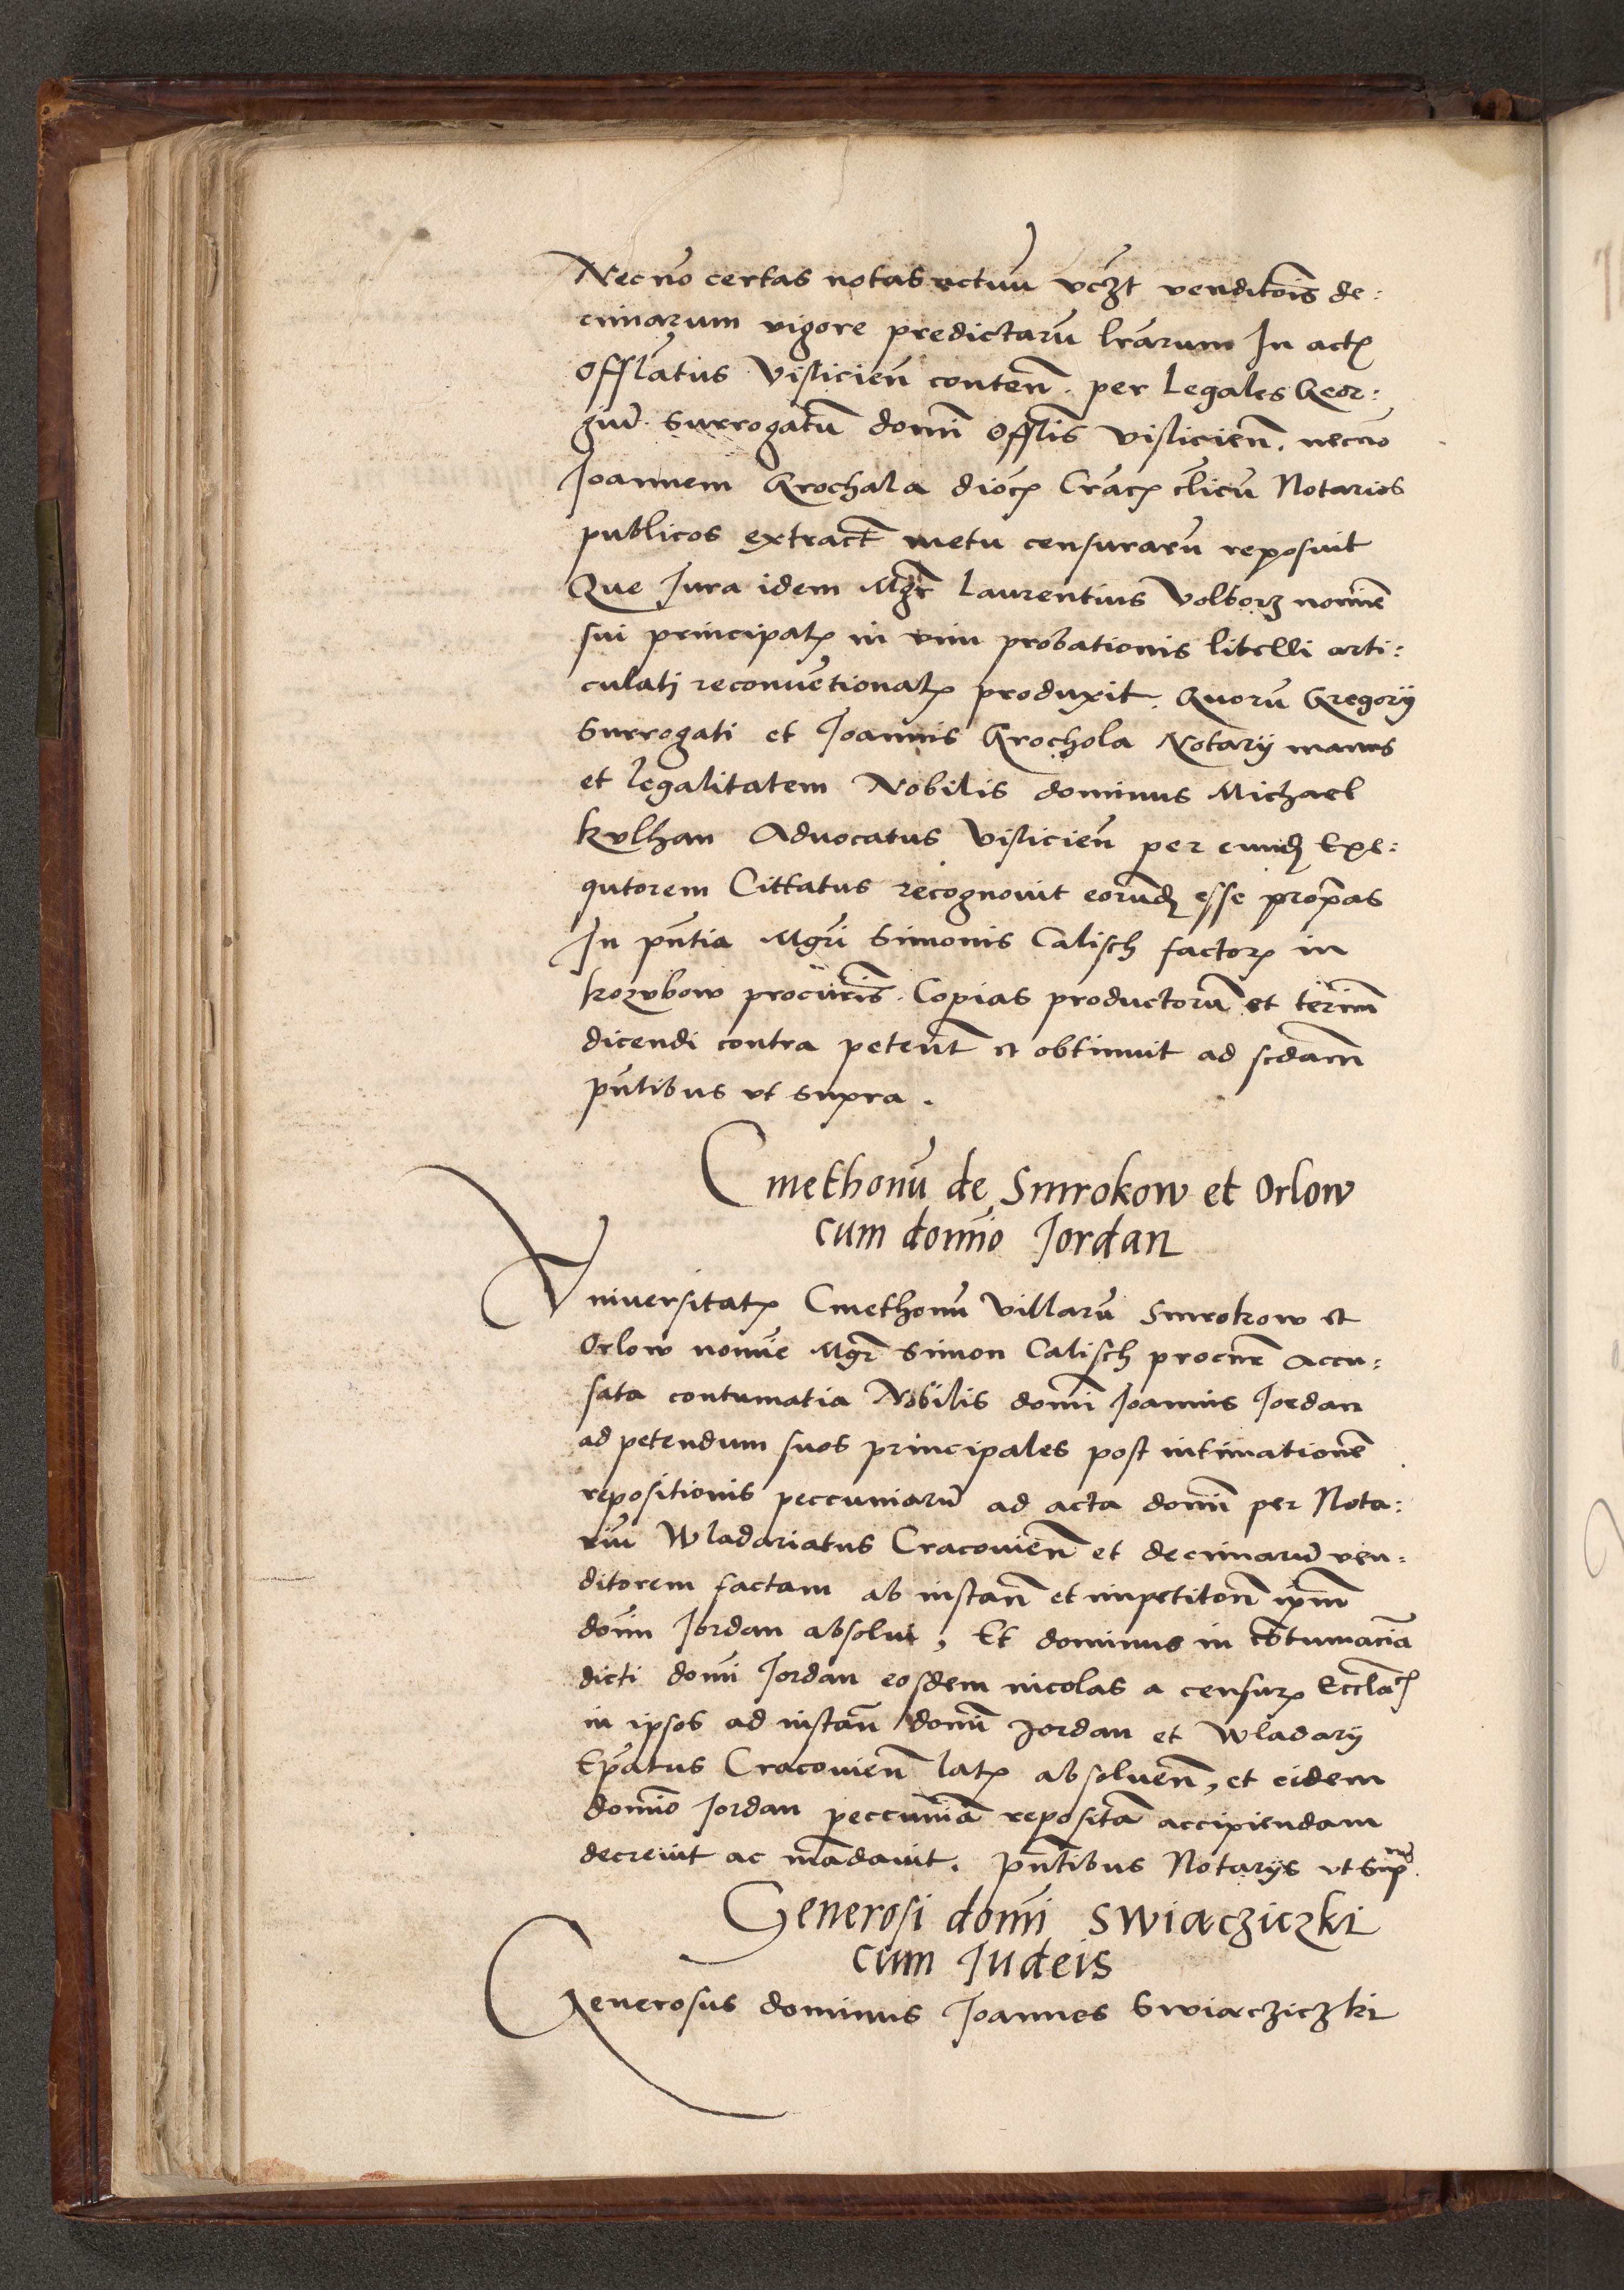 Necno certas notas actuū vcꝫt venditoīs de:
cimarum vigore predictarū lrarum In actꝭ
Offlatus Visliciēn conteñ. per Legales Geor:
giū Surrogatū domī Offlis vislicieñ. necno
Joannem Grochala diocꝭ Cracꝭ clicū Notarios
publicos extract metu censurarū reposuit
Que Jura idem Mgr Laurentius Volborz nomīe
sui principalꝭ in vim probationis libelli arti:
culati reconuētionalꝭ produxit. Quorū Gregorij
Surrogati et Joannis Grochola Notarij manus
et legalitatem Nobilis dominus Michael
kulhan Aduocatus Visliciēn per eundꝫ Exe:
qutorem Cittatus recognouit eorundꝫ esse propas
In pn̄tia Mgri Simonis Calisch factorꝭ in
kozubow procuris. Copias productorū et terim
dicendi contra peteñt et obtinuit ad scdam
pn̄tibus vt supra.
Cmethonū de Smrokow et Orlow
cum domio Jordan
Vniversitatꝭ Cmethonū Villarū Smrokow et
Orlow nomie Mgr Simon Calisch procure Accu:
sata contumatia Nobilis domī Joannis Jordan
ad petendum suos principales post intimationē
repositionis peccuniarū ad acta domī per Nota:
riū Wladariatus Cracouieñ et decimarū ven:
ditorem factam ab instañ et impetitoñ ipm̄
domi Jordan absolui, Et dominus in cōtumaciā
dicti domi Jordan eosdem incolas a censurꝭ Eccla
in ipsos ad instañ domī Jordan et Wladarij
Epatus Cracouieñ latꝭ absolueñ, et eidem
domio Jordan peccuniā repositā accipiendam
decreuit ac mādauit. Pn̄tibus Notarijs vt sup.
Generosi domi Swiacziczki
cum Judeis
Generosus dominus Joannes Swiacziczki